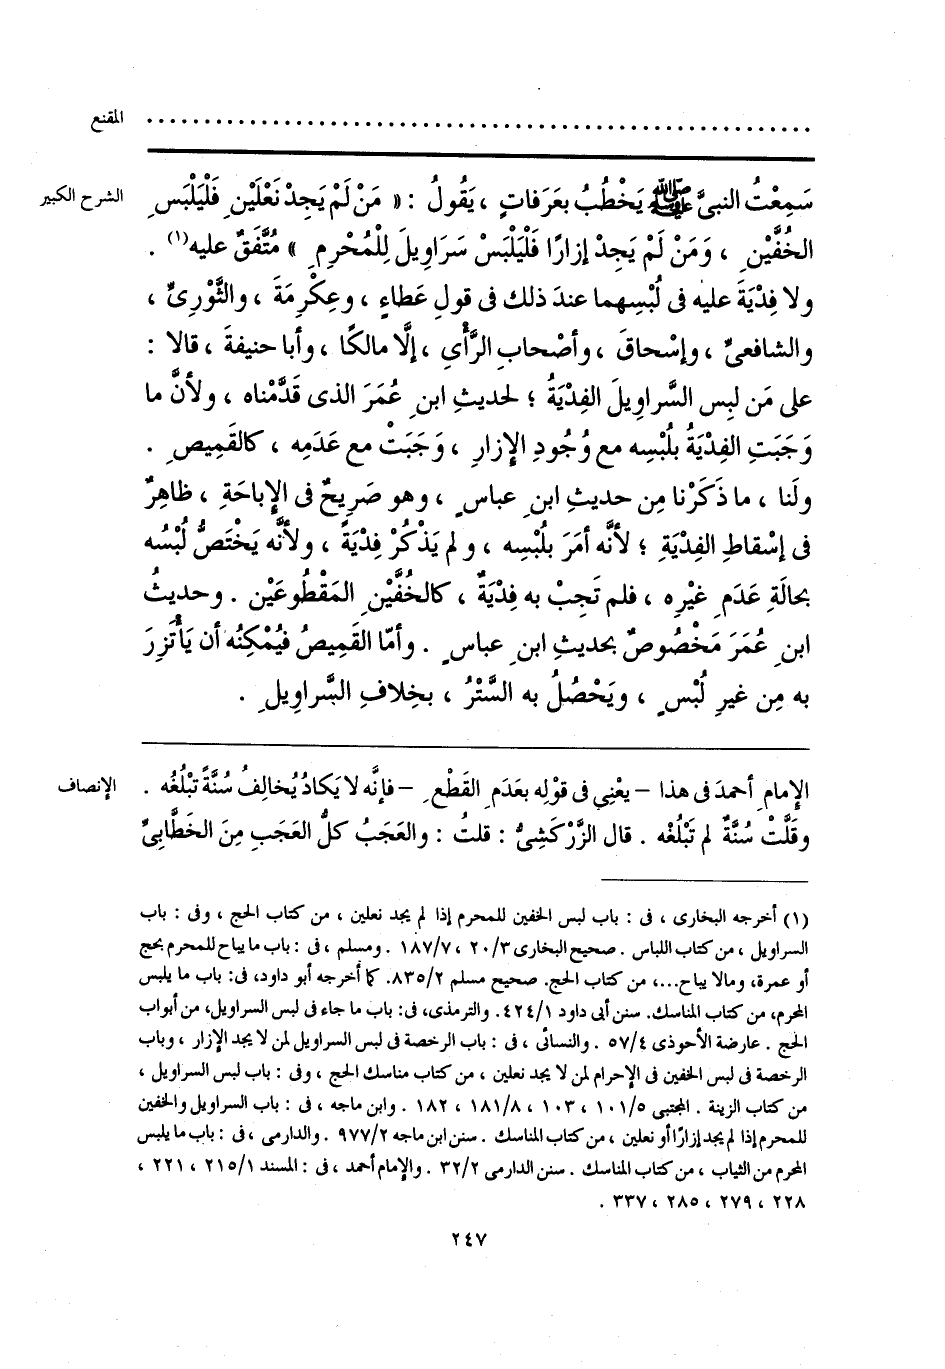 المقنع ........................................................
الشرح الكبير سَمِعْتُ النبىَّ ﷺ يَخْطُبُ بعَرَفاتٍ ، يَقُولُ : « مَنْ لَمْ يَجِدْ نَعْلَيْنِ فَلْيَلْبَسِ
الخُفَّيْنِ ، وَمَنْ لَمْ يَجِدْ إزارًا فَلْيَلْبَسْ سَرَاوِيلَ لِلْمُحْرِمِ » مُتَّفَقٌ عليه(١) .
ولا فِدْيَةَ عليه فى لُبْسِهما عندَ ذلك فى قولِ عَطاءٍ ، وعِكْرِمَةَ ، والثَّوْرِىِّ ،
والشافعىِّ ، وإسْحاقَ ، وأصْحابِ الرَّأْىِ ، إلَّا مالكًا ، وأبا حنيفةَ ، قالا :
على مَن لبِس السَّراوِيلَ الفِدْيَةُ ؛ لحديثِ ابنِ عُمَرَ الذى قَدَّمْناه ، ولأنَّ ما
وَجَبَتِ الفِدْيَةُ بلُبْسِه مع وُجُودِ الإِزارِ ، وَجَبَتْ مع عَدَمِه ، كالقَمِيصِ .
ولَنا ، ما ذَكَرْنا مِن حديثِ ابنِ عباسٍ ، وهو صَرِيحٌ فى الإِباحَةِ ، ظاهِرٌ
فى إسْقاطِ الفِدْيَةِ ؛ لأنَّه أمَرَ بلُبْسِه ، ولم يَذْكُرْ فِدْيَةً ، ولأنَّه يَخْتَصُّ لُبْسُه
بحالَةِ عَدَمِ غيْرِه ، فلم تَجِبْ به فِدْيَةٌ ، كالخُفَّيْنِ المَقْطُوعَيْن . وحديثُ
ابنِ عُمَرَ مَخْصُوصٌ بحديثِ ابنِ عباسٍ . وأمّا القَمِيصُ فيُمْكِنُه أن يَأْتَزِرَ
به مِن غيرِ لُبْسٍ ، ويَحْصُلُ به السَّتْرُ ، بخِلافِ السَّراوِيلِ .
الإنصاف الإِمامِ أحمدَ فى هذا – يعْنِى فى قوْلِه بعَدَمِ القَطْعِ – فإنَّه لا يَكادُ يُخالِفُ سُنَّةً تبْلُغُه .
وقَلَّتْ سُنَّةٌ لم تَبْلُغْه . قال الزَّرْكَشِىُّ : قلتُ : والعَجَبُ كلُّ العَجَبِ مِنَ الخَطَّابِىِّ
(١) أخرجه البخارى ، فى : باب لبس الخفين للمحرم إذا لم يجد نعلين ، من كتاب الحج ، وفى : باب
السراويل ، من كتاب اللباس . صحيح البخارى ٢٠/٣ ، ١٨٧/٧ . ومسلم ، فى : باب ما يباح للمحرم بحج
أو عمرة، ومالا يباح...، من كتاب الحج. صحيح مسلم ٨٣٥/٢. كما أخرجه أبو داود، فى: باب ما يلبس
المحرم، من كتاب المناسك. سنن أبى داود ٤٢٤/١. والترمذى، فى: باب ما جاء فى لبس السراويل، من أبواب
الحج . عارضة الأحوذى ٥٧/٤ . والنسائى ، فى : باب الرخصة فى لبس السراويل لمن لا يجد الإزار ، وباب
الرخصة فى لبس الخفين فى الإحرام لمن لا يجد نعلين ، من كتاب مناسك الحج ، وفى : باب لبس السراويل ،
من كتاب الزينة . المجتبى ١٠١/٥ ، ١٠٣ ، ١٨١/٨ ، ١٨٢ . وابن ماجه ، فى : باب السراويل والخفين
للمحرم إذا لم يجد إزارًا أو نعلين ، من كتاب المناسك . سنن ابن ماجه ٩٧٧/٢ . والدارمى ، فى : باب ما يلبس
المحرم من الثياب ، من كتاب المناسك . سنن الدارمى ٣٢/٢ . والإمام أحمد ، فى : المسند ٢١٥/١ ، ٢٢١ ،
٢٢٨ ، ٢٧٩ ، ٢٨٥ ، ٣٣٧ .
٢٤٧